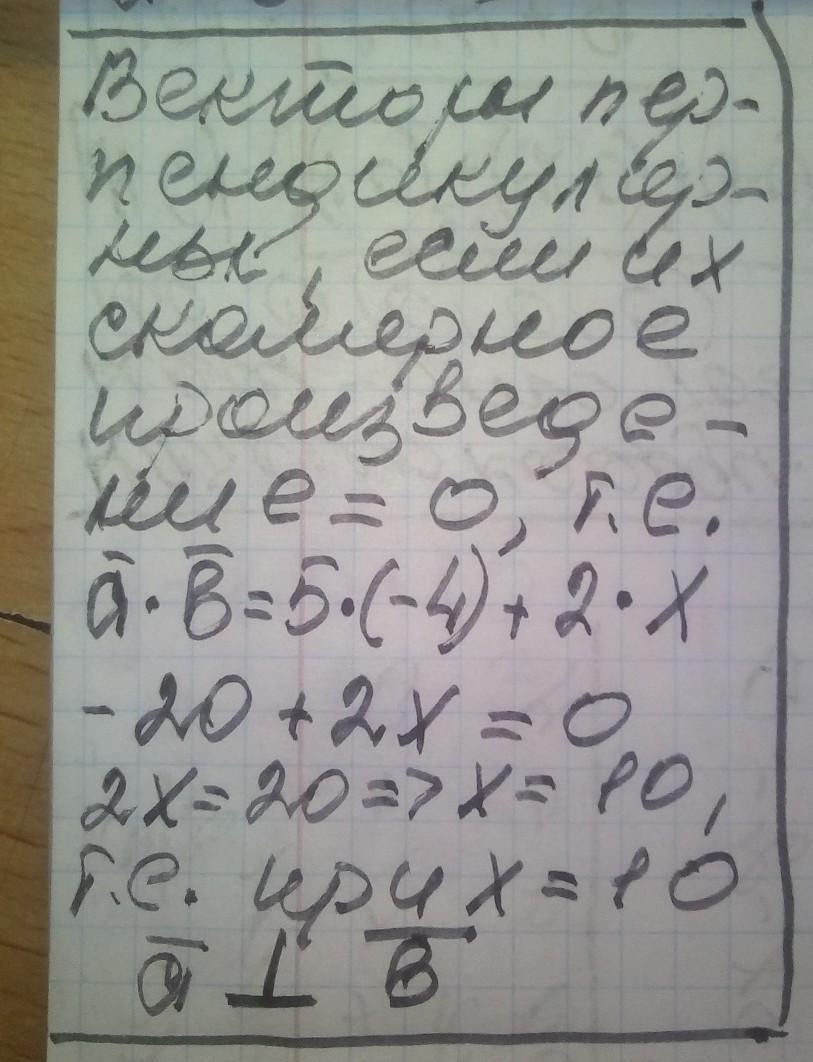 Векторы пер-
пендикуляр-
ны, если их
скалярное
произведе-
ние = 0, т.е.
ā · b̄ = 5·(-4) + 2·x
-20 + 2x = 0
2x = 20 => x = 10,
т.е. при x = 10
ā ⊥ b̄